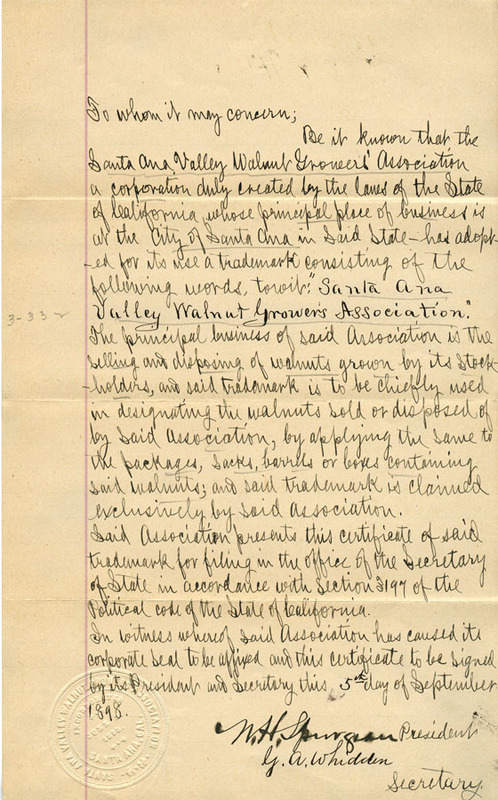 To whom it may concern;
Be it known that the
Santa Ana Valley Walnut Growers' Association
a corporation duly created by the laws of the State
of California, whose principal place of business is
at the City of Santa Ana in said State - has adopt-
-ed for its use a trademark consisting of the
following words, towit: "Santa Ana
Valley Walnut Growers Association".
3-332
The principal business of said Association is the
selling and disposing of walnuts grown by its Stock-
-holders, and said trademark is to be chiefly used
in designating the walnuts sold or disposed of
by said Association, by applying the same to
the packages, sacks, barrels or boxes containing
said walnuts; and said trademark is claimed
exclusively by said Association.
Said Association presents this certificate of said
trademark for filing in the office of the Secretary
of State in accordance with Section 3197 of the
Political code of the State of California.
In witness whereof said Association has caused its
corporate seal to be affixed and this certificate to be signed
by its President and Secretary this 5th day of September
1898.
W. H. Spurgeon President
G. A. Whidden
Secretary.